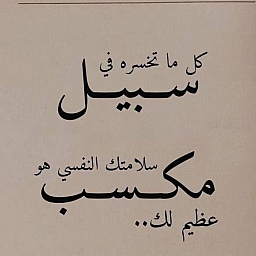 كل ما تخسره في
سبيل
سلامتك النفسي هو
مكسب
عظيم لك..